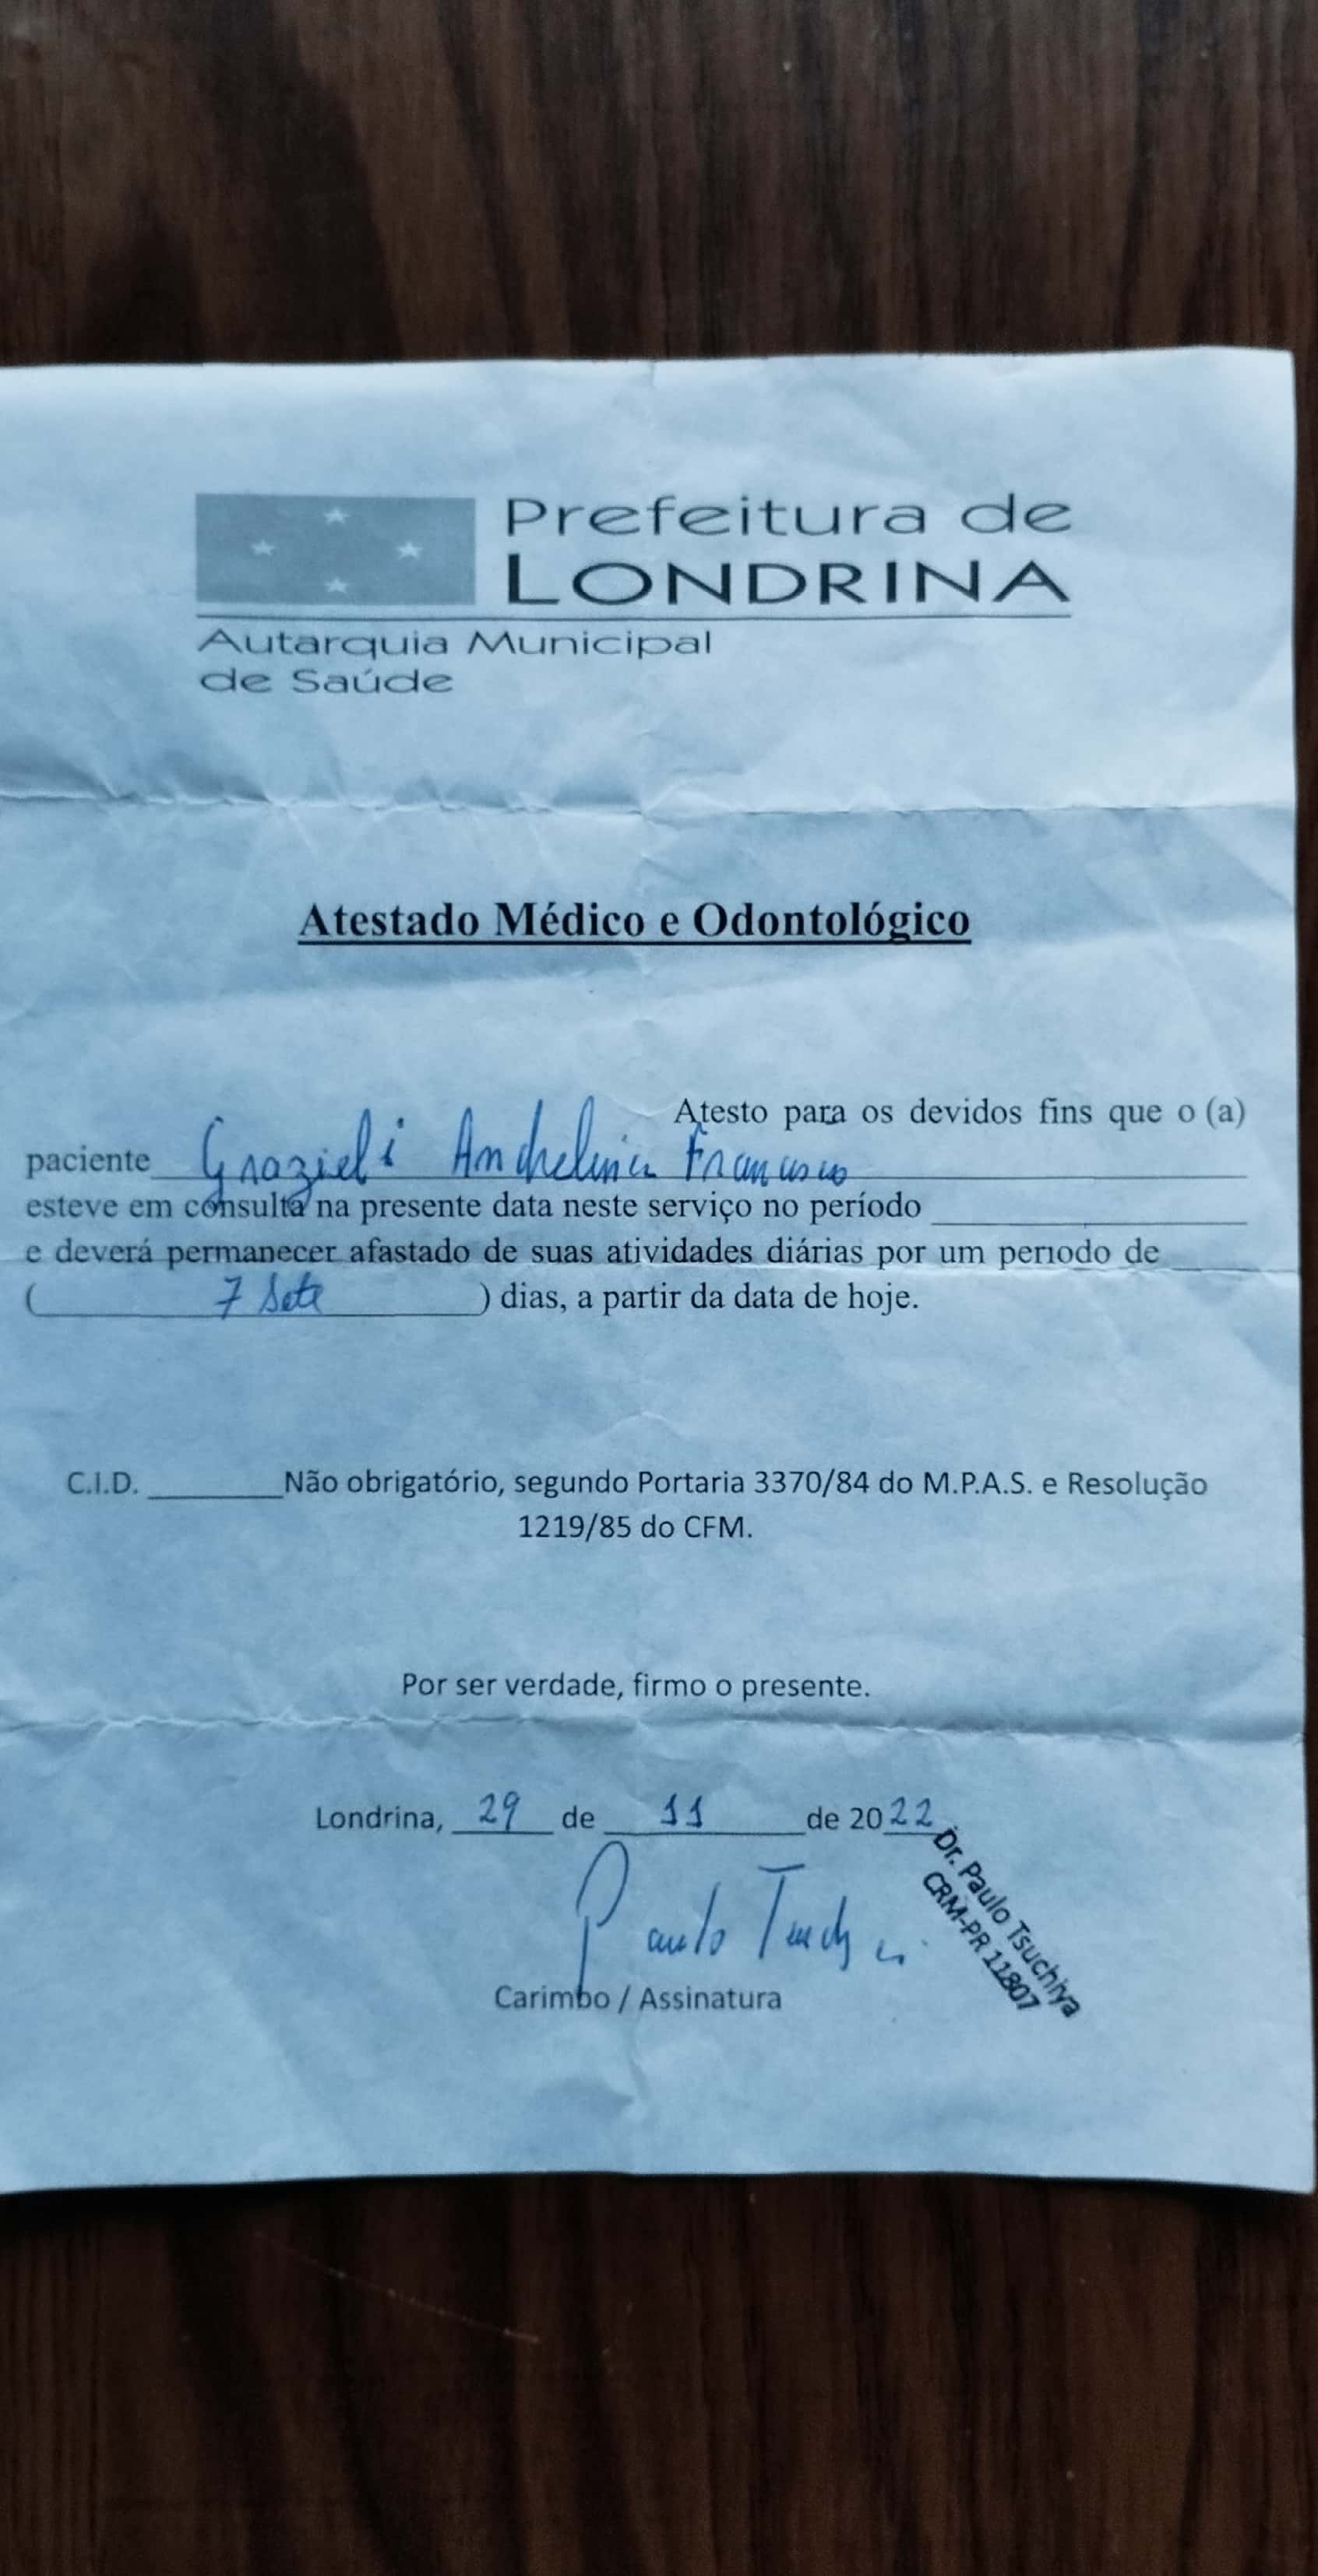 Prefeitura de
LONDRINA
Autarquia Municipal
de Saúde
Atestado Médico e Odontológico
Atesto para os devidos fins que o (a)
paciente Grazieli Andhelina Francisco
esteve em consulta na presente data neste serviço no período
e deverá permanecer afastado de suas atividades diárias por um periodo de
( 7 Sete ) dias, a partir da data de hoje.
C.I.D. ________Não obrigatório, segundo Portaria 3370/84 do M.P.A.S. e Resolução
1219/85 do CFM.
Por ser verdade, firmo o presente.
Londrina, 29 de 11 de 2022
Dr. Paulo Tsuchiya
CRM-PR 11807
Paulo
Carimbo / Assinatura